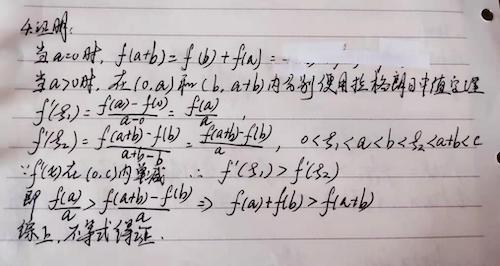 4.证明:
当a=0时, f(a+b)=f(b)+f(a)=
当a>0时, 在(0,a)和(b,a+b)内分别使用拉格朗日中值定理
f'(ξ₁)=\frac{f(a)-f(0)}{a-0}=\frac{f(a)}{a},
f'(ξ₂)=\frac{f(a+b)-f(b)}{a+b-b}=\frac{f(a+b)-f(b)}{a}, 0<ξ₁<a<b<ξ₂<a+b<c
∵f'(x)在(0,c)内单减 ∴ f'(ξ₁)>f'(ξ₂)
即 \frac{f(a)}{a}>\frac{f(a+b)-f(b)}{a} ⇒ f(a)+f(b)>f(a+b)
综上,不等式得证.